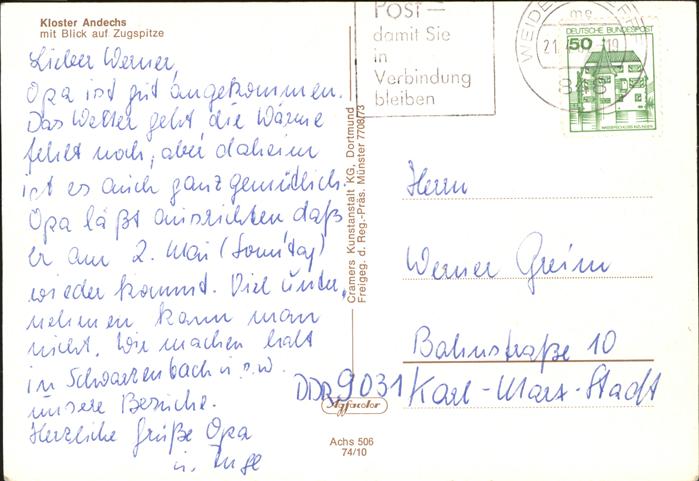 Kloster Andechs
mit Blick auf Zugspitze
Lieber Werner,
Opa ist gut angekommen.
Das Wetter geht die Wärme
fehlt noch, aber daheim
ist es auch ganz gemütlich.
Opa läßt ausrichten daß
er am 2. Mai (Sonntag)
wieder kommt. Viel unter-
nehmen kann man
nicht. Wir machen halt
in Schwarzenbach u.s.w.
unsere Besuche.
Herzliche Grüße Opa
u. Inge
Cramers Kunstanstalt KG, Dortmund
Freigeg. d. Reg.-Präs. Münster 7708/73
Agfacolor
Achs 506
74/10
Post –
damit Sie
in
Verbindung
bleiben
WEIDEN
21.
-19
848
DEUTSCHE BUNDESPOST
50
WASSERSCHLOSS INZLINGEN
Herrn
Werner Greim
Bahnstraße 10
DDR 9031 Karl-Marx-Stadt